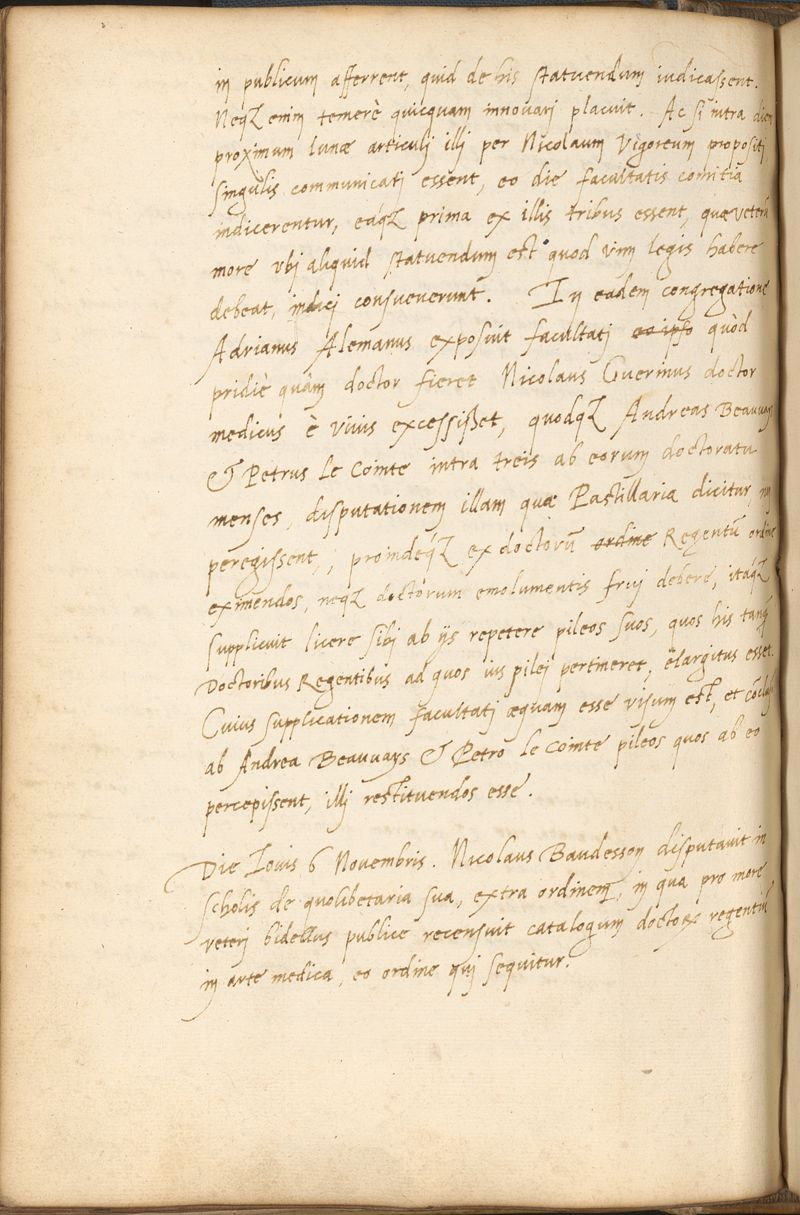 in publicum afferrent, quid de his statuendum iudicassent.
Neqƺ enim temerè quicquam innouari placuit. Ac si intra diem
proximum lunæ articuli illi per Nicolaum Vigoreum propositi
singulis communicati essent, eo die facultatis comitia
indicerentur, eáqƺ prima ex illis tribus essent, quæ veterū
more vbi aliquid statuendum est quod vim legis habere
debeat, indici consueuerunt. In eadem congregatione
Adrianus Alemanus exposuit facultati eo ipso quòd
pridiè quàm doctor fieret Nicolaus Guerinus doctor
medicus è viuis excessisset, quodqƺ Andreas Beauuays
& Petrus le Comte intra treis ab eorum doctoratu
menses, disputationem illam quæ Pastillaria dicitur, nō
peregissent, proindéqƺ ex doctorū ordine Regentū ordine
eximendos, neqƺ doctorum emolumentis frui debere, itáqƺ
supplicuit licere sibi ab ijs repetere pileos suos, quos his tanq̄
Doctoribus Regentibus ad quos ius pilei pertineret, elargitus esset.
Cuius supplicationem facultati æquam esse visum est, et
ab Andrea Beauuays & Petro le Comte pileos quos ab eo
percepissent, illi restituendos esse.
Die Iouis 6 Nouembris. Nicolaus Baudesson disputauit in
scholis de quolibetaria sua, extra ordinem, in qua pro more
veteri bidellus publice recensuit catalogum doctorꝝ regentiū
in arte medica, eo ordine qui sequitur.